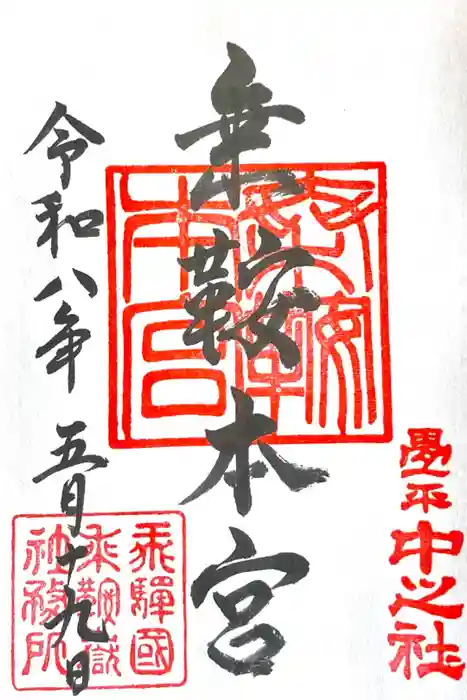 乗鞍本宮
畳平
中之社
令和八年 五月十九日
乗鞍本宮
飛騨國
乗鞍嶽
社務所